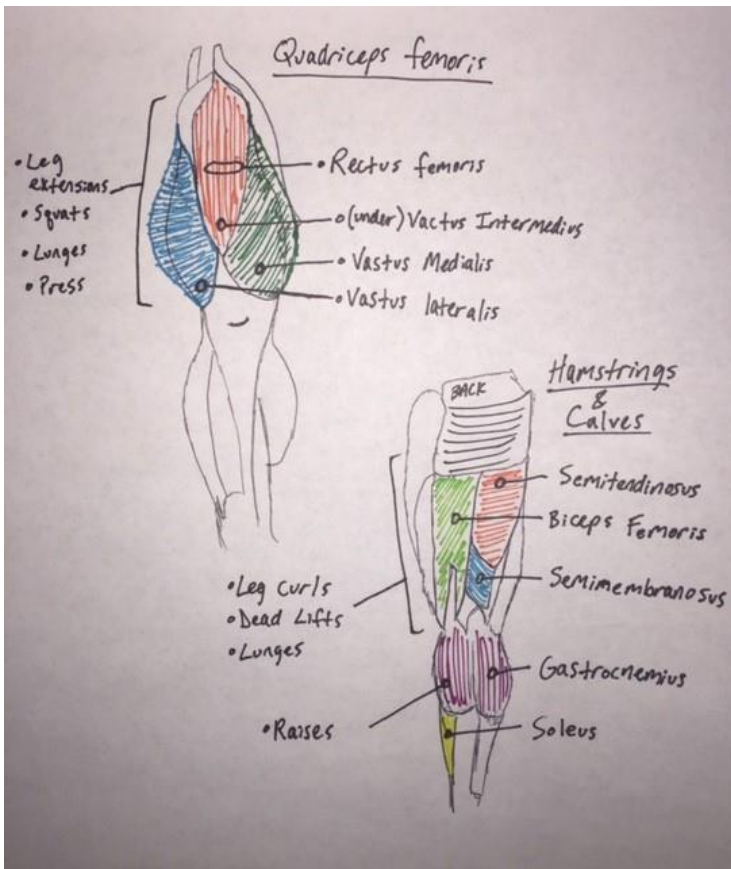 Quadriceps femoris
• Leg
extensions
• Squats
• Lunges
• Press
• Rectus femoris
• (under) Vactus Intermedius
• Vastus Medialis
• Vastus lateralis
Hamstrings
&
Calves
BACK
Semitendinosus
Biceps Femoris
Semimembranosus
• Leg Curls
• Dead Lifts
• Lunges
Gastrocnemius
• Raises
Soleus